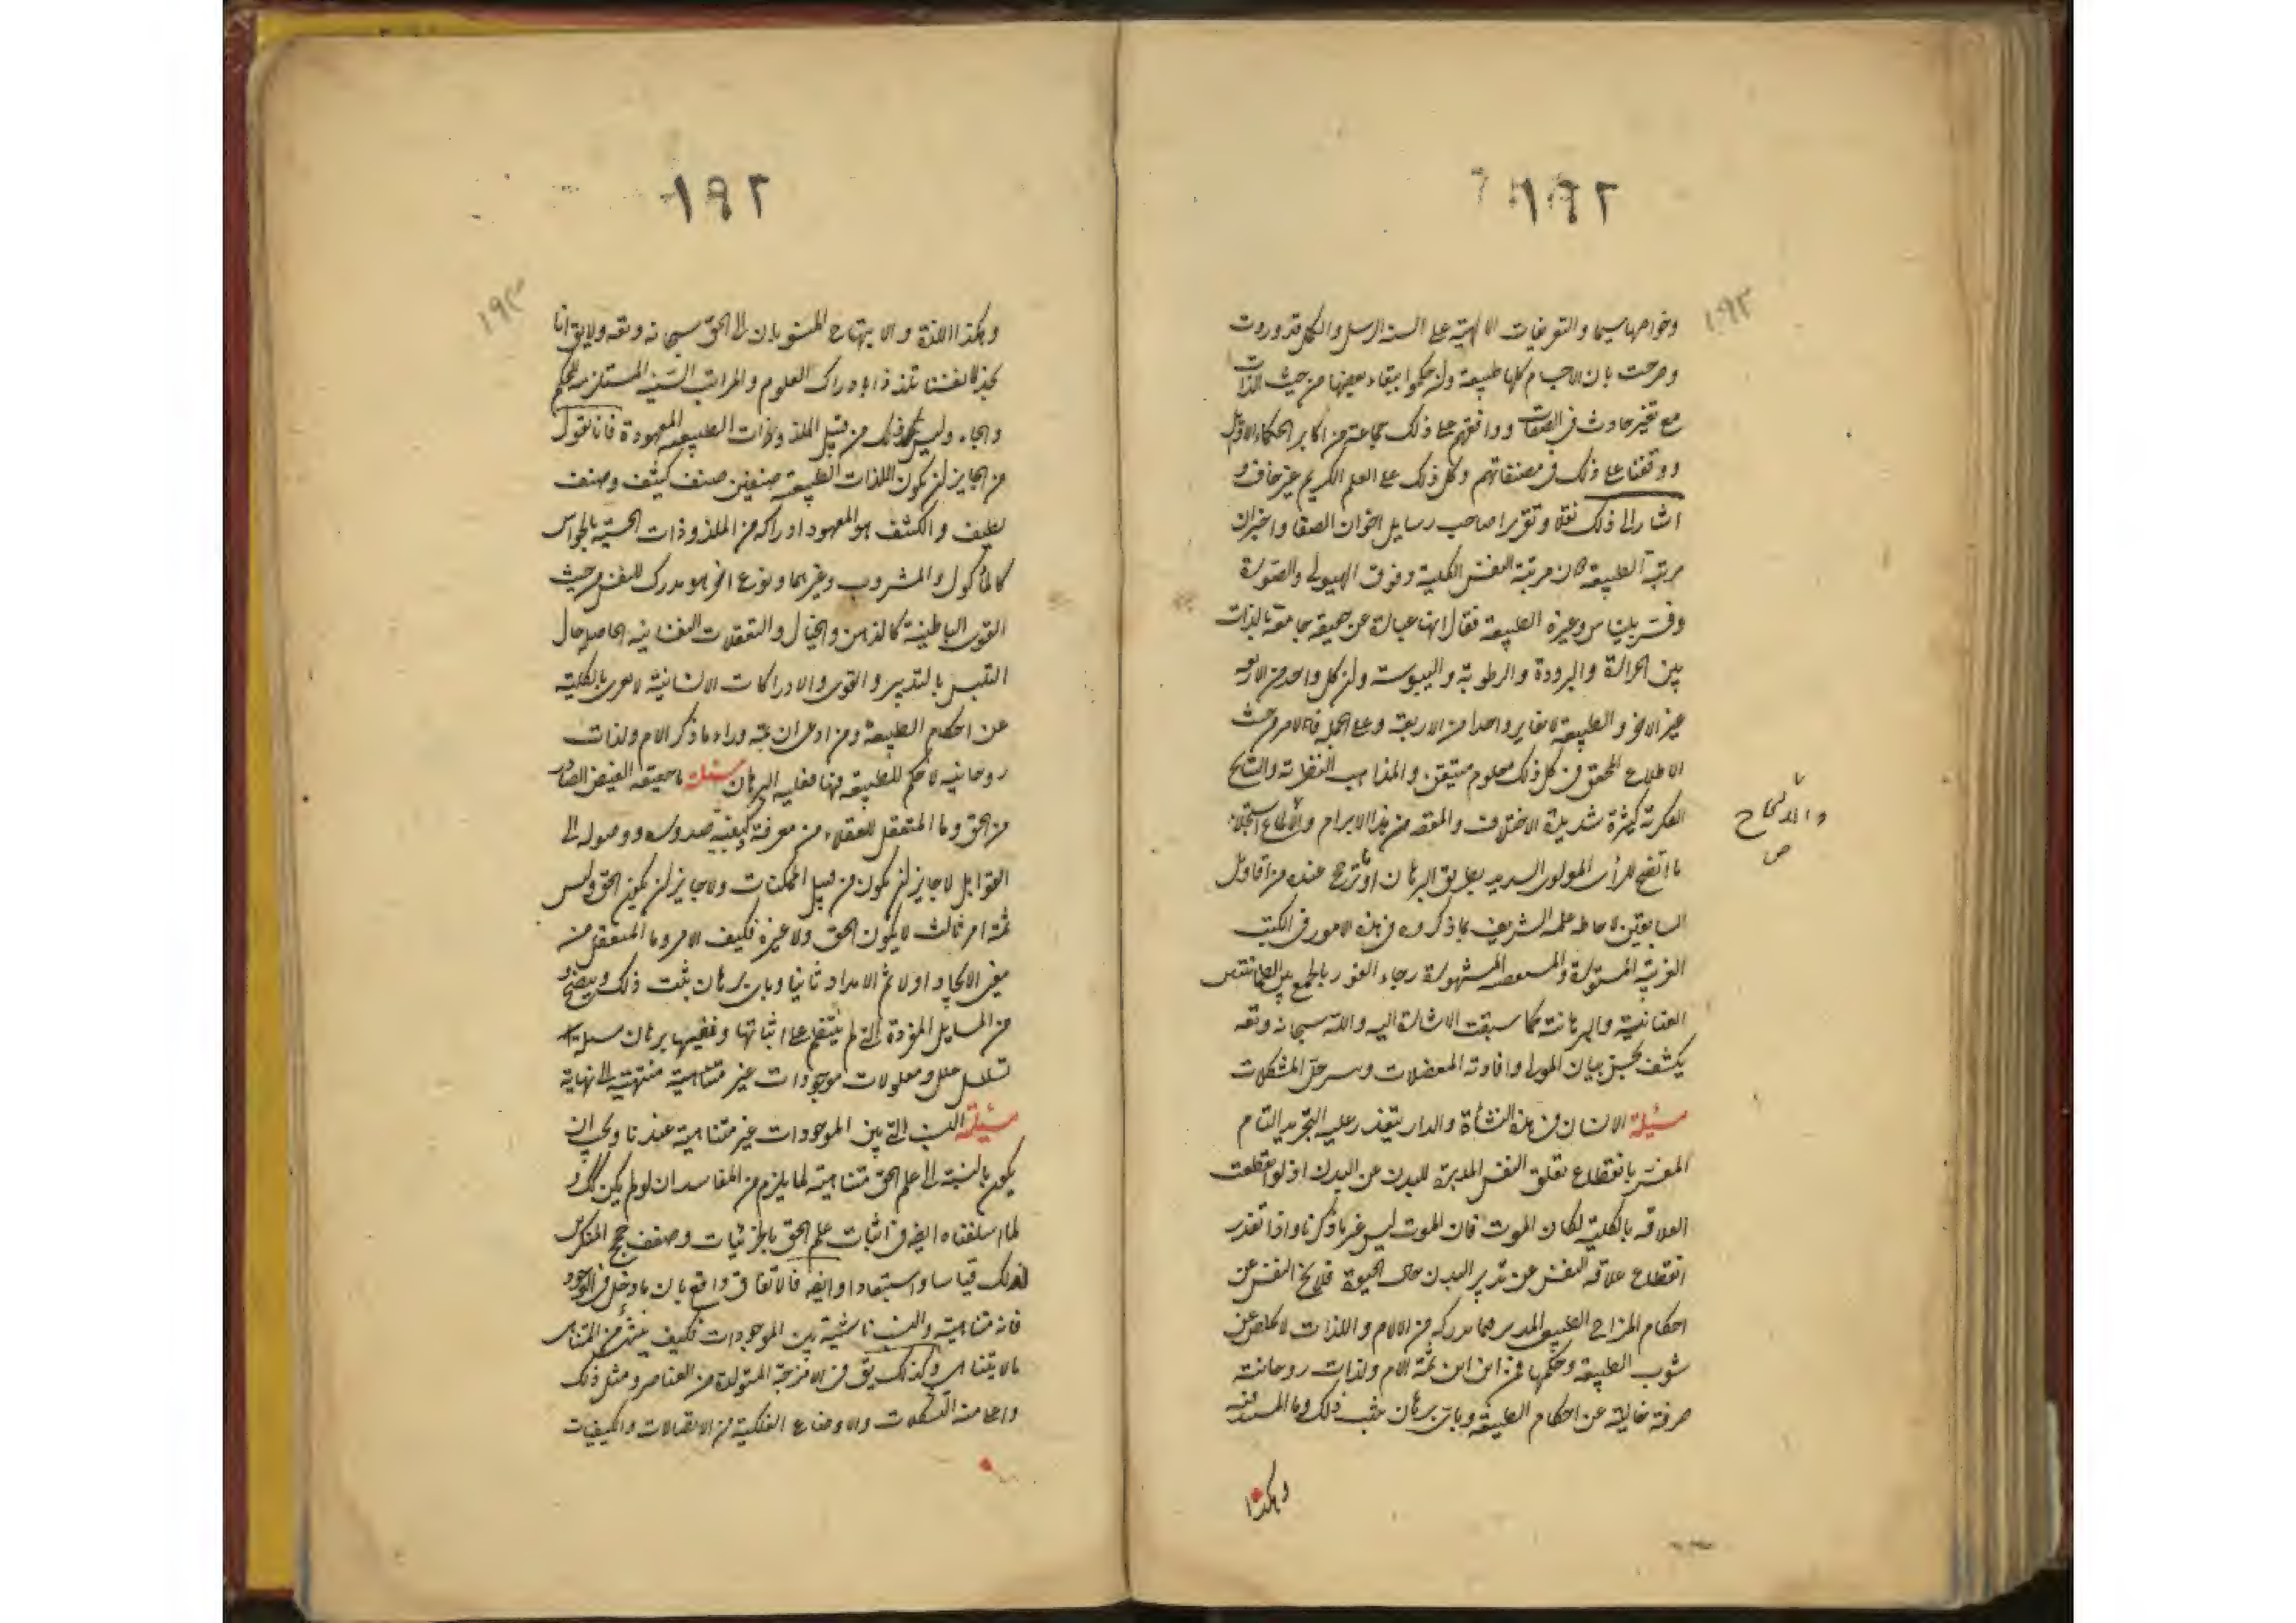 ١٩٢
١٩٢
وخواصها سيما والتعريفات الالهية على السنة الرسل والكمل قد وردت
وصرحت بان الاجسام كلها طبيعة وان حكموا ببقاء بعضها من حيث الذات
مع تغير حادث في الصفات ووافقهم على ذلك جماعة من اكابر الحكماء الاوائل
ووقفنا على ذلك في مصنفاتهم وكل ذلك على العلم الكريم غير خاف و
اشار الى ذلك نقلا وتقريرا صاحب رسايل اخوان الصفا واخبر ان
مرتبة الطبيعة دون مرتبة النفس الكلية وفوق الهيولى والصورة
وفسر بليناس وغيره الطبيعة فقال انها عبارة عن حقيقة جامعة بالذات
بين الحرارة والبرودة والرطوبة واليبوسة وان كل واحد من الاربعة
غير الاخر والطبيعة لا تغاير واحدا من الاربعة وعلى الجملة فالامر من حيث
الاطلاع المحقق في كل ذلك معلوم متيقن والمذاهب النظرية والنتايج
الفكرية كثيرة شديدة الاختلاف والمقصد من هذا الابرام والالحاح استجلاء
والالحاح
ص
ما اتضح للرأى المولوى السديد بطريق البرهان او ترجح عنده من اقاويل
السابقين لاحاطة علمه الشريف بما ذكروه في هذه الامور في الكتب
الغريبة المستورة والمشهورة رجاء الفوز بالجمع بين
العنانية والبرهانية كما سبقت الاشارة اليه والله سبحانه وتعه
يكشف بحسن بيان المولى وافادته المعضلات وسر حل المشكلات
مسئلة الانسان في هذه النشأة والدار يتعذر عليه التجريد التام
المفسر بانقطاع تعلق النفس المدبرة للبدن عن البدن اذ لو انقطعت
العلاقة بالكلية لكان الموت فان الموت ليس غير ما ذكرنا واذا تعذر
انقطاع علاقة النفس عن تدبير البدن حال الحيوة فلا تخ النفس عن
احكام المزاج الطبيعى المدبر فما يدركه من الالام واللذات لا يخلص عن
شوب الطبيعة وحكمها فمن اين ان ثمة الام ولذات روحانية
صرفة خالية عن احكام الطبيعة وباى برهان يثبت ذلك وما
وهكذا
١٩٢
١٩٣
وهكذا اللذة والابتهاج المنسوبان الى الحق سبحانه وتعه ولا يق انا
نجد لانفسنا تلذذا بادراك العلوم والمراتب السنية المستلزمة للحكم
والجاه وليس ذلك من قبيل الملذوذات الطبيعية المعهودة فانا نقول
من الجايز ان يكون اللذات الطبيعية صنفين صنف كثيف وصنف
لطيف والكثيف هو المعهود ادراكه من الملذوذات الحسية بالحواس
كالمأكول والمشروب وغيرهما ونوع اخر هو مدرك للنفس من حيث
القوى الباطنية كالذهن والخيال والتعقلات النفسانية الحاصل حال
التلبس بالتدبير والقوى والادراكات الانسانية لا تعرى بالكلية
عن احكام الطبيعة ومن ادعى ان ثمة وراء ما ذكر الام ولذات
روحانية لا حكم للطبيعة فيها فعليه البرهان مسئلة ما حقيقة الفيض الصادر
من الحق وما المتعقل للعقلاء من معرفة كيفية صدوره ووصوله الى
القوابل لا جايز ان يكون من قبيل الممكنات ولا جايز ان يكون الحق وليس
ثمة امر ثالث لا يكون الحق ولا غيره فكيف الامر وما المتعقل منه
معنى الايجاد اولا ثم الامداد ثانيا وباى برهان يثبت ذلك ويتضح و
من المسايل المؤدة التى لم ينتظم على اثباتها ونفيها برهان مسئلة
تسلسل علل ومعلولات موجودات غير متناهية منتهية الى نهاية
مسئلة النسب التى بين الموجودات غير متناهية عندنا ويجب ان
يكون بالنسبة الى علم الحق متناهية لما يلزم من المفاسد ان لو لم يكن كك و
لما اسلفناه ايضه في اثبات علم الحق بالجزئيات وضعف حجج المنكرين
لذلك قياسا واستبعادا وايضه فالاتفاق واقع بان ما دخل في الوجود
فانه متناهية والنسب ناشية بين الموجودات فكيف ينشئ من المتناهى
ما لا يتناهى وكذلك يق في الامزجة المتولدة من العناصر ومثل ذلك
والاوضاع الفلكية من الاتصالات والكيفيات